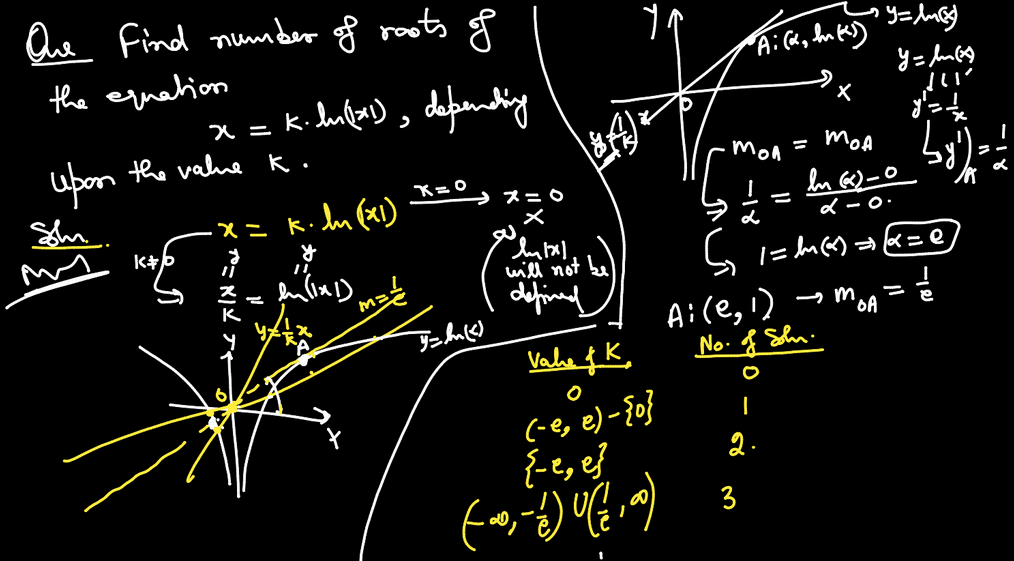 Que Find number of roots of
the equation
x = K. ln(|x|), depending
upon the value K.
Soln.
x = K. ln(|x|)
K=0 → x = 0
x
ln|x|
will not be
defined
K≠0
y y
" "
x/K = ln(|x|)
m=1/e
y=1/K x
y=ln(x)
Y
A
O
X
Y
y=ln(x)
A:(α, ln(α))
X
O
y=(1/K)x
y=ln(x)
y'=1/x
y')A = 1/α
mOA = mOA
1/α = ln(α)-0/α-0.
1=ln(α) ⇒ α=e
A:(e,1) → mOA = 1/e
Value of K No. of Soln.
0 0
(-e, e)-{0} 1
{-e, e} 2.
(-∞, -1/e) ∪ (1/e, ∞) 3